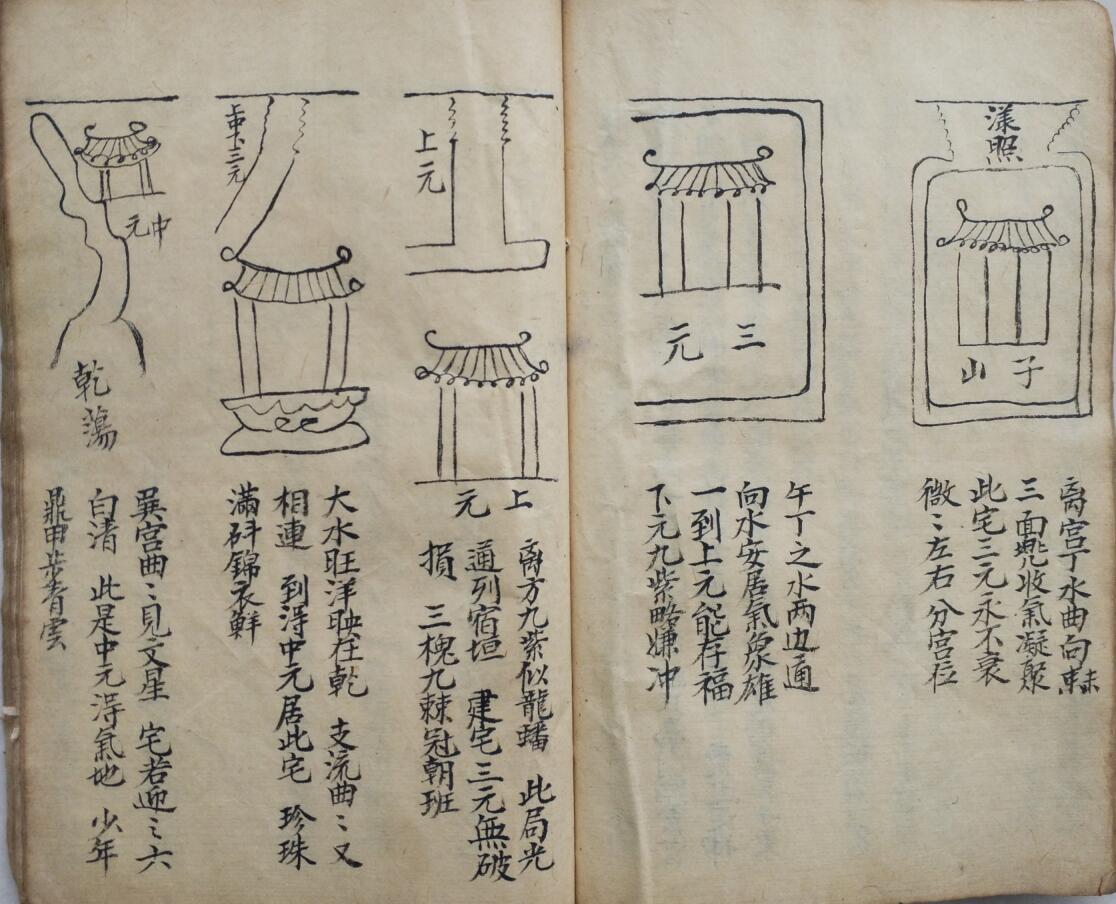 漾照
子山
离宫丁水曲向
三面兜收氣凝聚
此宅三元永不衰
微〻左右分宫位
三元
午丁之水两边通
向水安居氣象雄
一到上元能存福
下元九紫略嫌冲
上元
上元
离方九紫似龍蟠 此局光
通列宿垣 建宅三元無破
損 三槐九棘冠朝班
上中下三元
大水旺洋映在乾 支流曲〻又
相連 到淂中元居此宅 珍珠
滿斗錦衣鲜
中元
乾蕩
巽宫曲〻見文星 宅若迎〻六
白清 此是中元淂氣地 少年
鼎甲步青雲